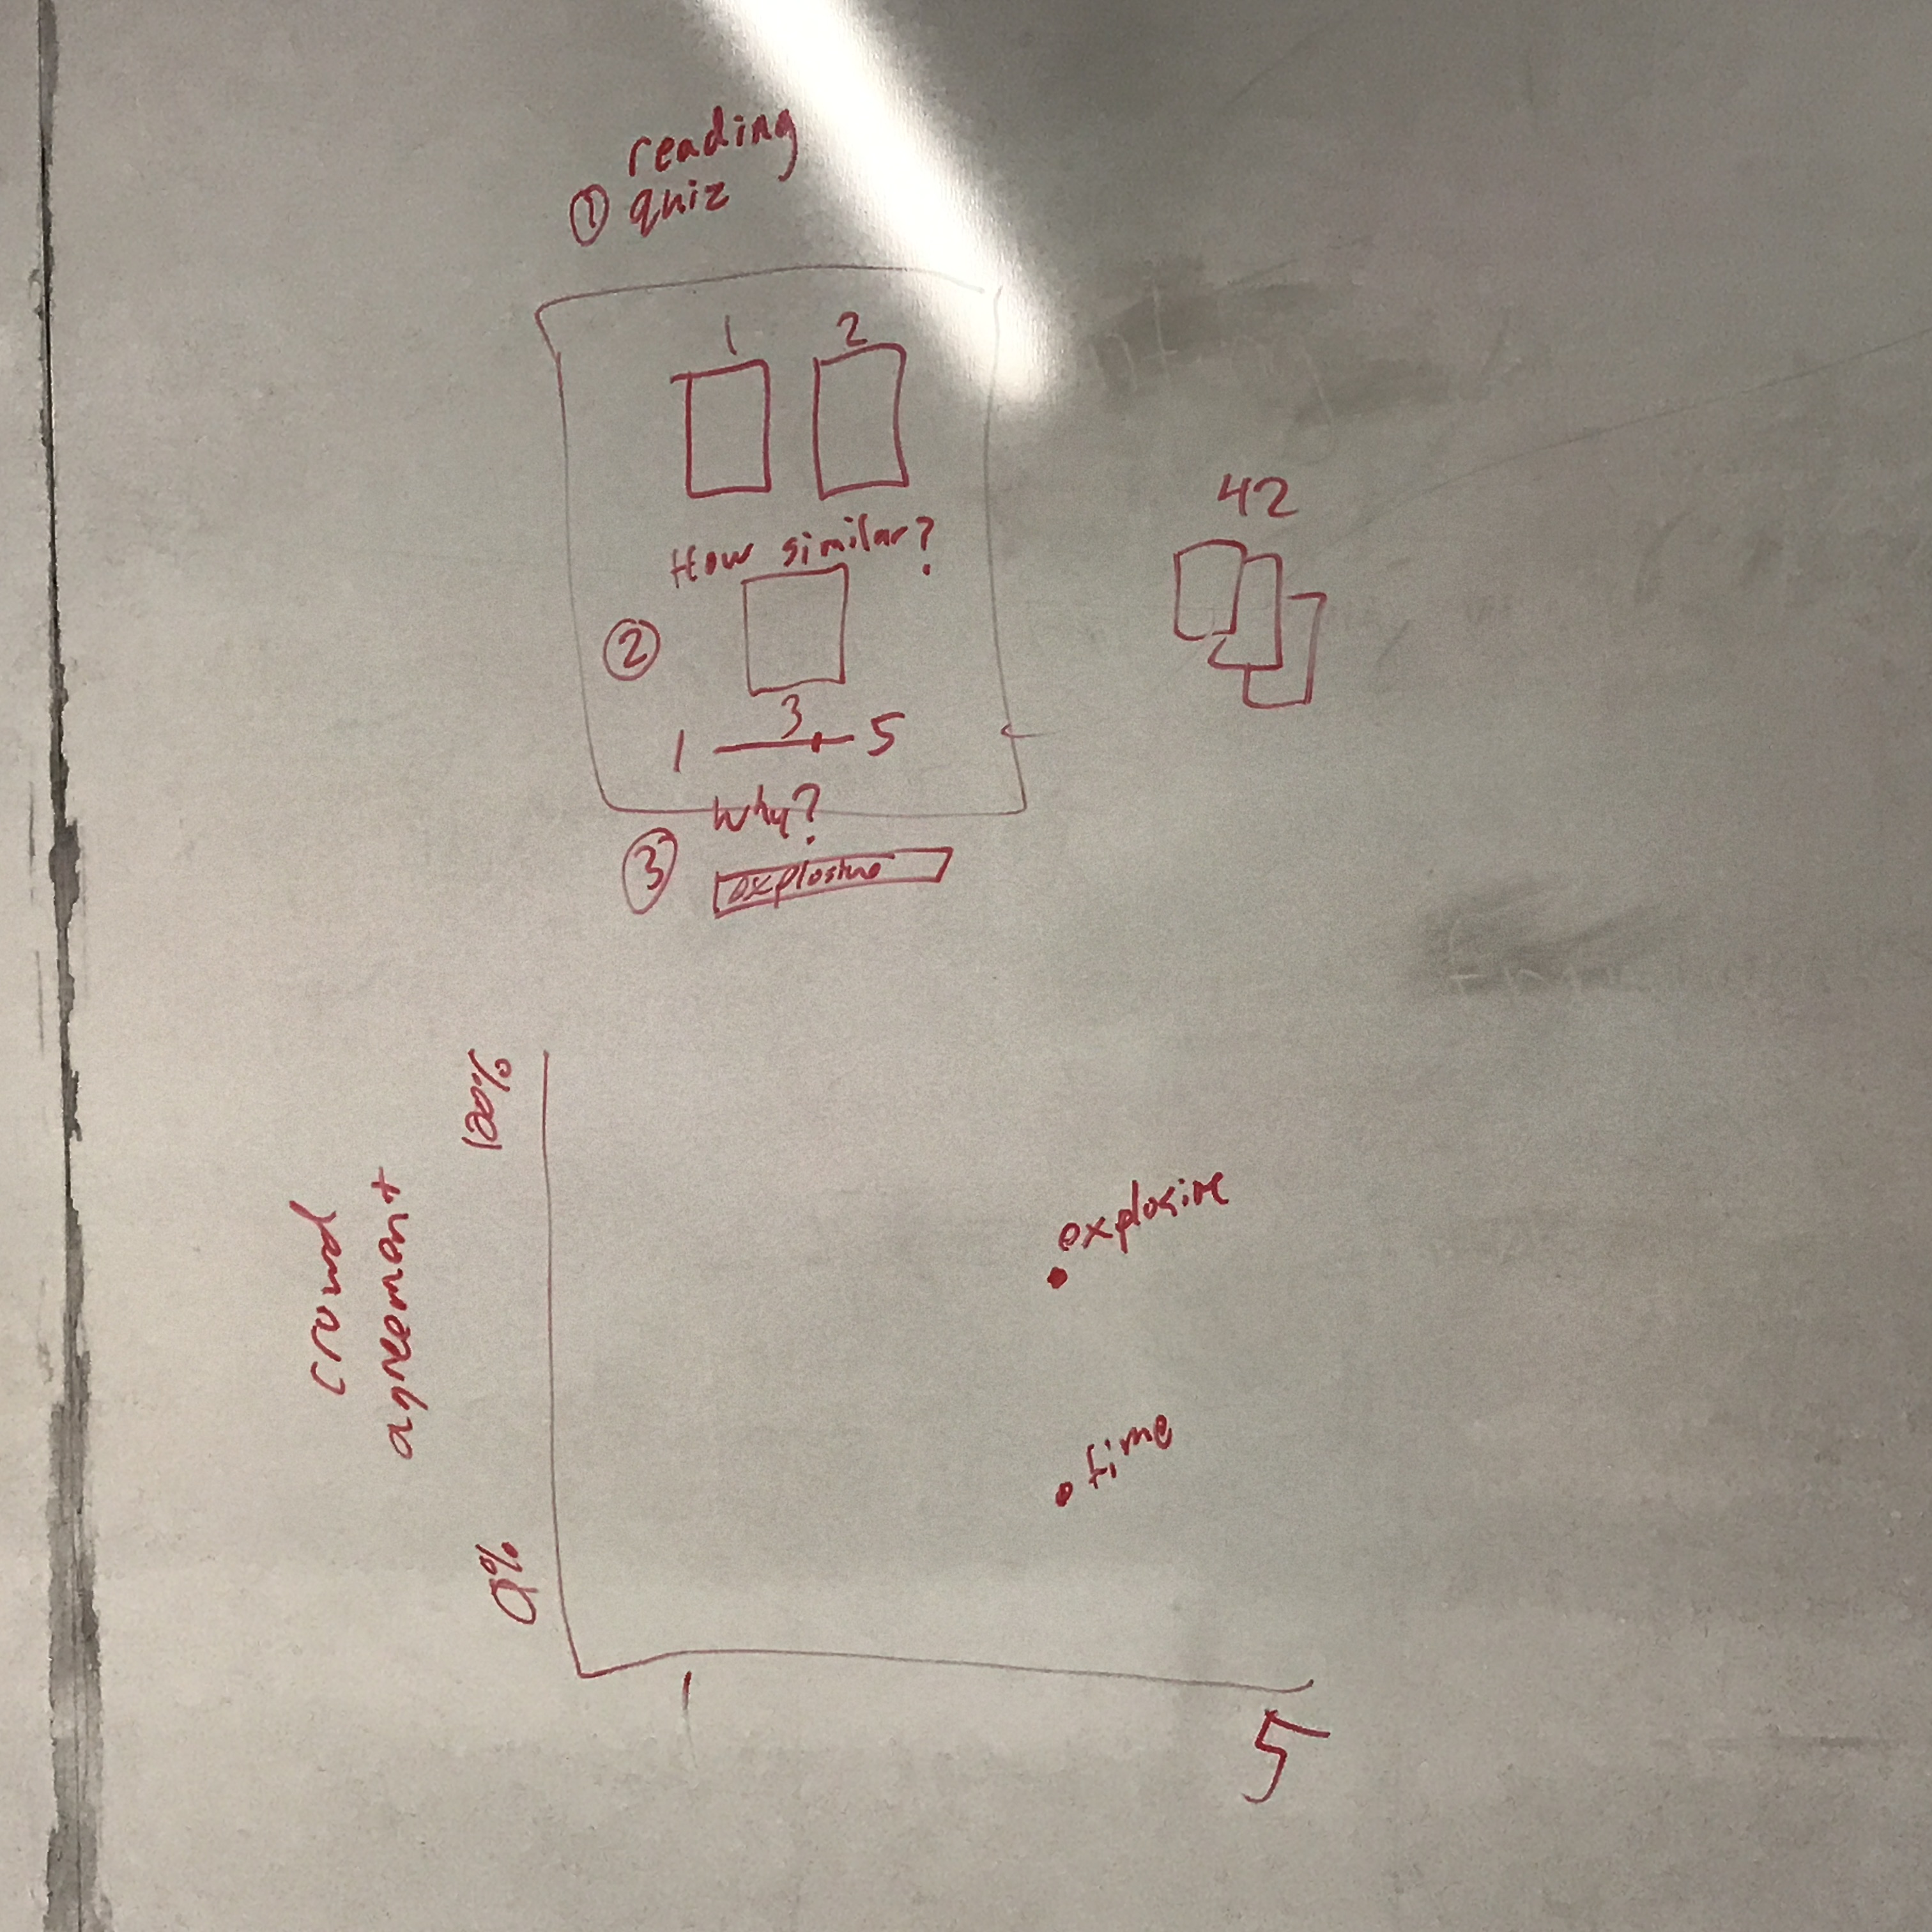 reading
① quiz
1 2
How similar?
②
3
1 5
Why?
③ explosive
42
100%
crowd
agreement
explosive
time
0%
1 5